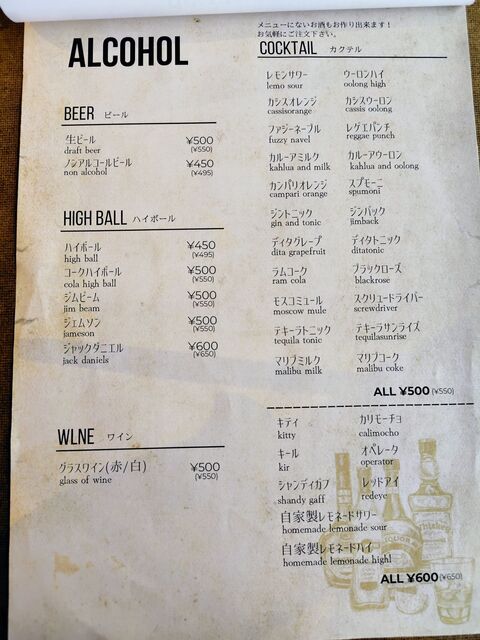 ALCOHOL
BEER ビール
生ビール ¥500
draft beer (¥550)
ノンアルコールビール ¥450
non alcohol (¥495)
HIGH BALL ハイボール
ハイボール ¥450
high ball (¥495)
コークハイボール ¥500
cola high ball (¥550)
ジムビーム ¥500
jim beam (¥550)
ジェムソン ¥500
jameson (¥550)
ジャックダニエル ¥600
jack daniels (¥650)
WLNE ワイン
グラスワイン(赤/白) ¥500
glass of wine (¥550)
メニューにないお酒もお作り出来ます!
お気軽にご注文下さい。
COCKTAIL カクテル
レモンサワー ウーロンハイ
lemo sour oolong high
カシスオレンジ カシスウーロン
cassisorange cassis oolong
ファジーネーブル レゲエパンチ
fuzzy navel reggae punch
カルーアミルク カルーアウーロン
kahlua and milk kahlua and oolong
カンパリオレンジ スプモーニ
campari orange spumoni
ジントニック ジンバック
gin and tonic jimback
ディタグレープ ディタトニック
dita grapefruit ditatonic
ラムコーク ブラックローズ
ram cola blackrose
モスコミュール スクリュードライバー
moscow mule screwdriver
テキーラトニック テキーラサンライズ
tequila tonic tequilasunrise
マリブミルク マリブコーク
malibu milk malibu coke
ALL ¥500 (¥550)
キティ カリモーチョ
kitty calimocho
キール オペレータ
kir operator
シャンディガフ レッドアイ
shandy gaff redeye
自家製レモネードサワー
homemade lemonade sour
自家製レモネードハイ
homemade lemonade highl
ALL ¥600 (¥650)